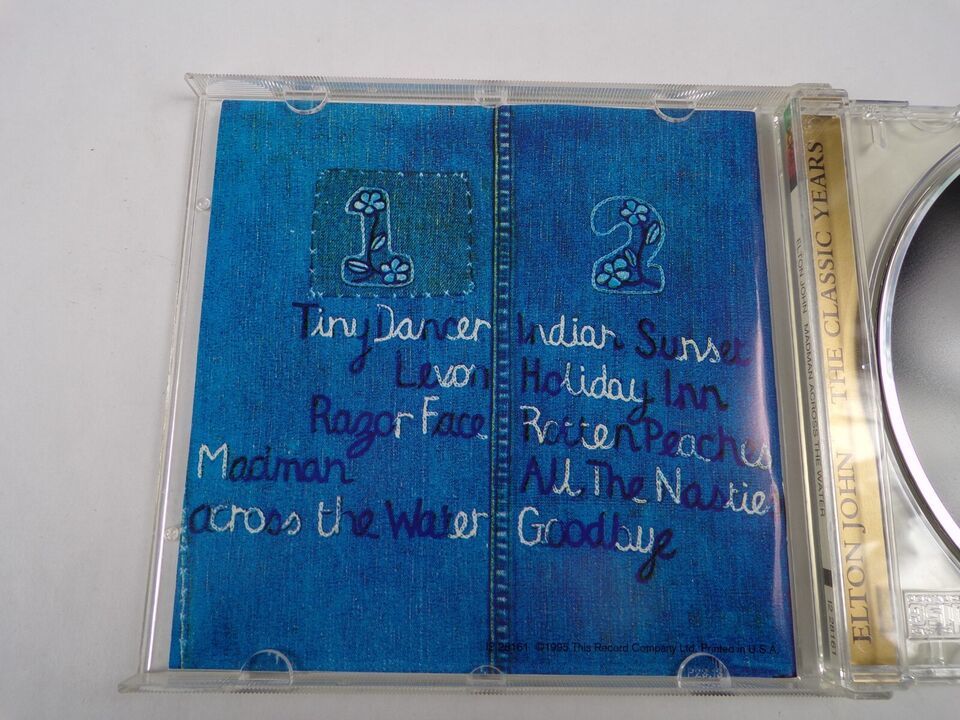 1
Tiny Dancer
Levon
Razor Face
Madman
across the Water
2
Indian Sunset
Holiday Inn
Rotten Peaches
All The Nasties
Goodbye
12 28161 ©1995 This Record Company Ltd. Printed in U.S.A.
ELTON JOHN THE CLASSIC YEARS
ELTON JOHN MADMAN ACROSS THE WATER
12 28161